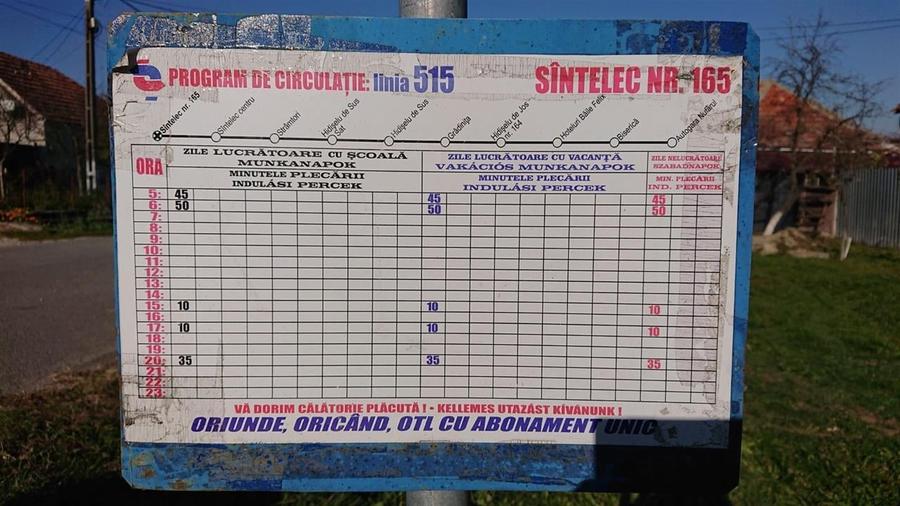 PROGRAM DE CIRCULAȚIE: linia 515
SÎNTELEC NR. 165
Sîntelec nr. 165
Sîntelec centru
Strâmtori
Hidișelu de Sus
Sat
Hidișelu de Sus
Grădinița
Hidișelu de Jos
nr. 164
Hoteluri Băile Felix
Biserică
Autogara Nufărul
ORA
ZILE LUCRĂTOARE CU ȘCOALĂ
MUNKANAPOK
MINUTELE PLECĂRII
INDULÁSI PERCEK
ZILE LUCRĂTOARE CU VACANȚĂ
VAKÁCIÓS MUNKANAPOK
MINUTELE PLECĂRII
INDULÁSI PERCEK
ZILE NELUCRĂTOARE
SZABADNAPOK
MIN. PLECĂRII
IND. PERCEK
5: 45 45 45
6: 50 50 50
7:
8:
9:
10:
11:
12:
13:
14:
15: 10 10 10
16:
17: 10 10 10
18:
19:
20: 35 35 35
21:
22:
23:
VĂ DORIM CĂLĂTORIE PLĂCUTĂ ! - KELLEMES UTAZÁST KÍVÁNUNK !
ORIUNDE, ORICÂND, OTL CU ABONAMENT UNIC